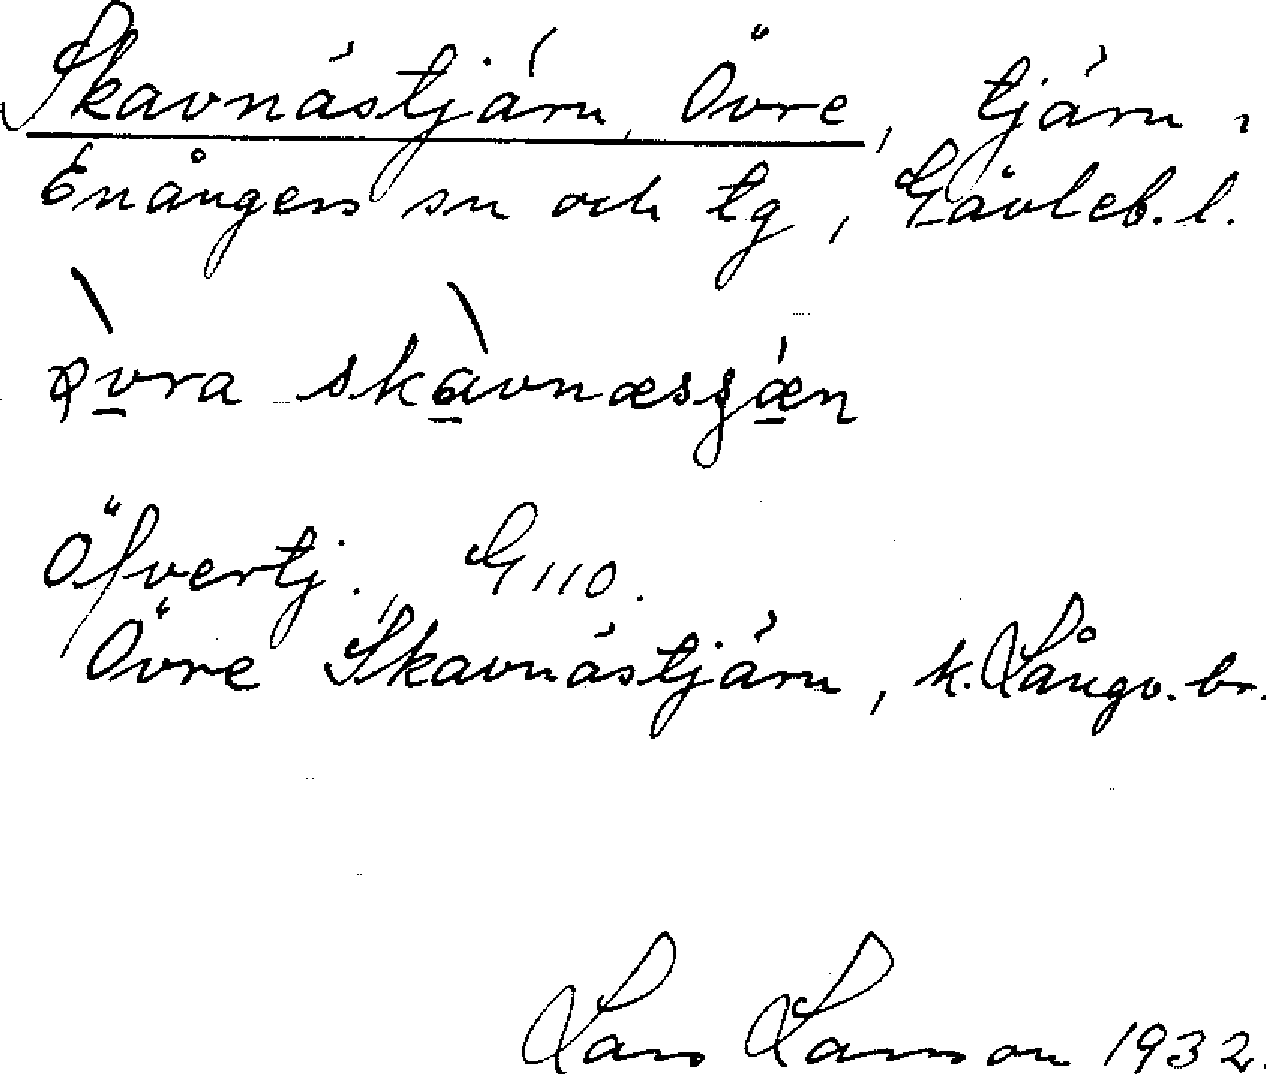 Skavnästjärn, Övre, tjärn i
Enångers sn och tg, Gävleb. l.
ǫ̀vra skàvnæsȿǽn
Öfvertj., G 110.
Övre Skavnästjärn, k. Långv. br.
Lars Larsson 1932.